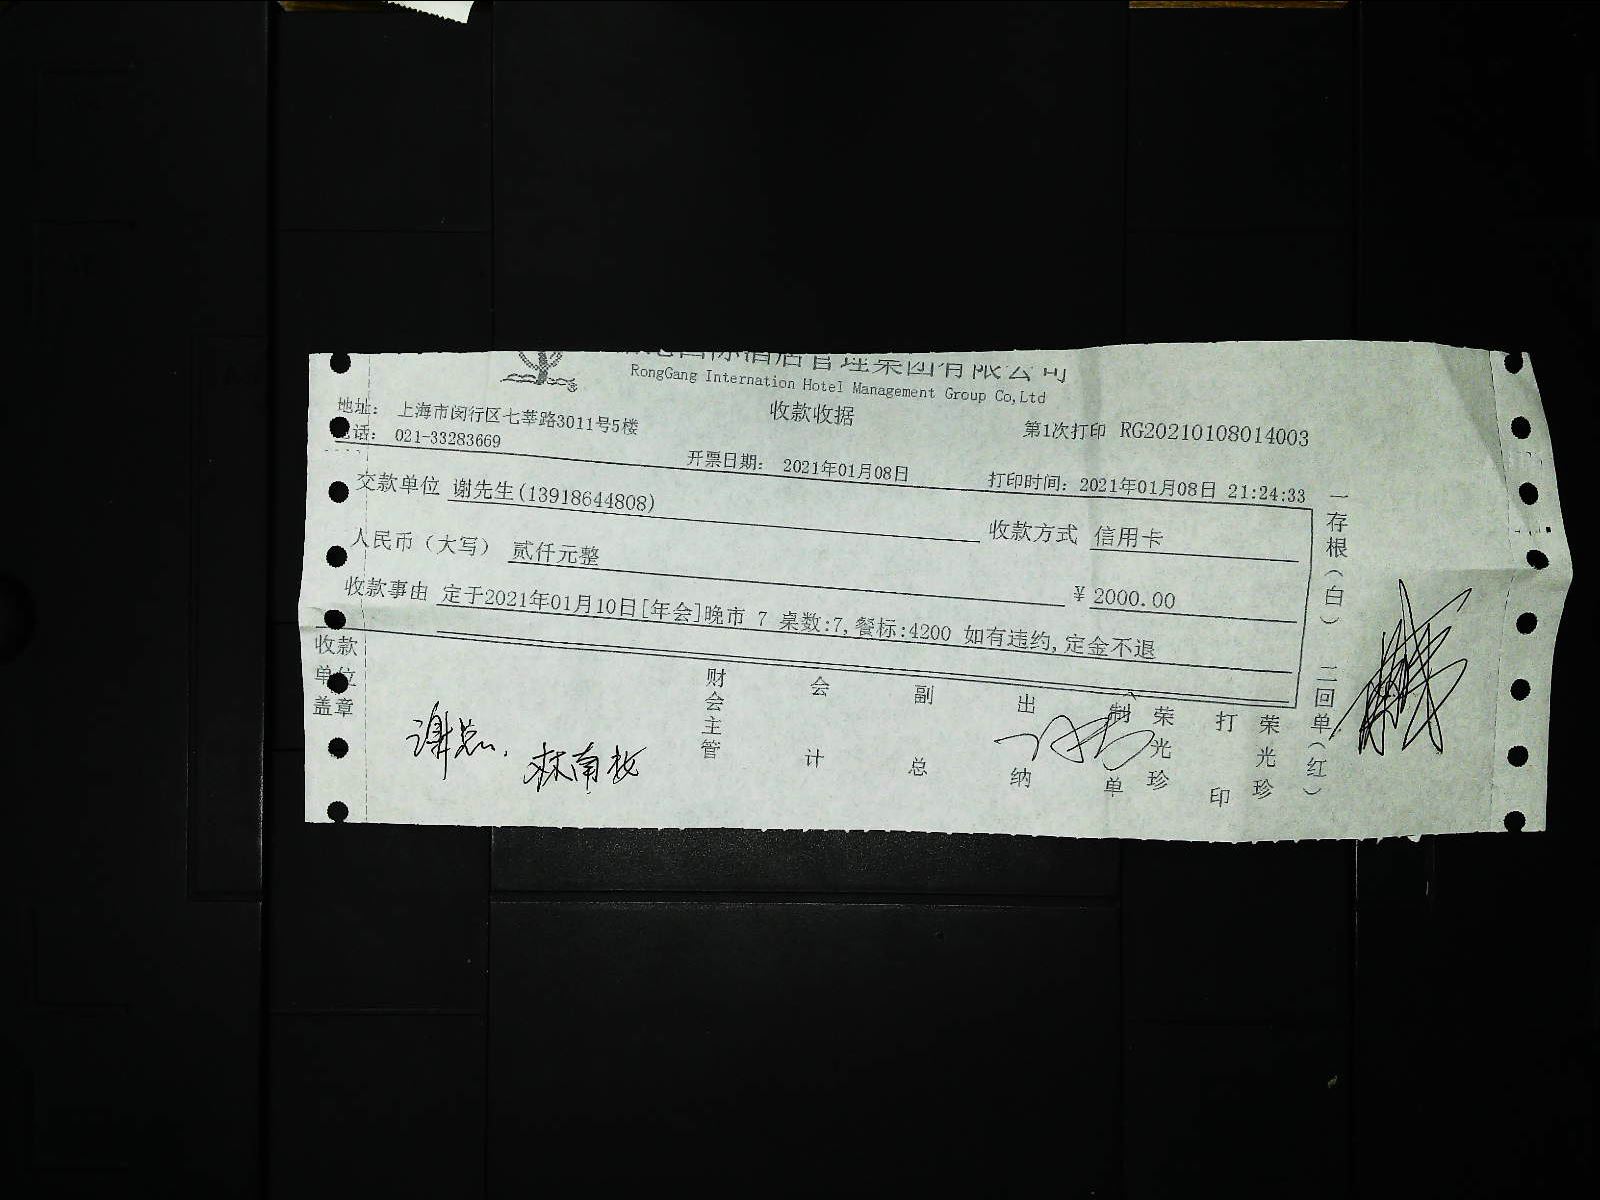 国际酒店管理集团有限公司
RongGang Internation Hotel Management Group Co,Ltd
收款收据
地址： 上海市闵行区七莘路3011号5楼
第1次打印 RG20210108014003
电话： 021-33283669
开票日期： 2021年01月08日
打印时间：2021年01月08日 21:24:33
交款单位 谢先生(13918644808)
收款方式 信用卡
人民币（大写） 贰仟元整
￥2000.00
收款事由 定于2021年01月10日[年会]晚市 7 桌数:7,餐标:4200 如有违约,定金不退
收款单位盖章
谢总.
林南枚
财会主管
会计
副总
出纳
制单
荣光珍
打印
荣光珍
一存根（白） 二回单（红）